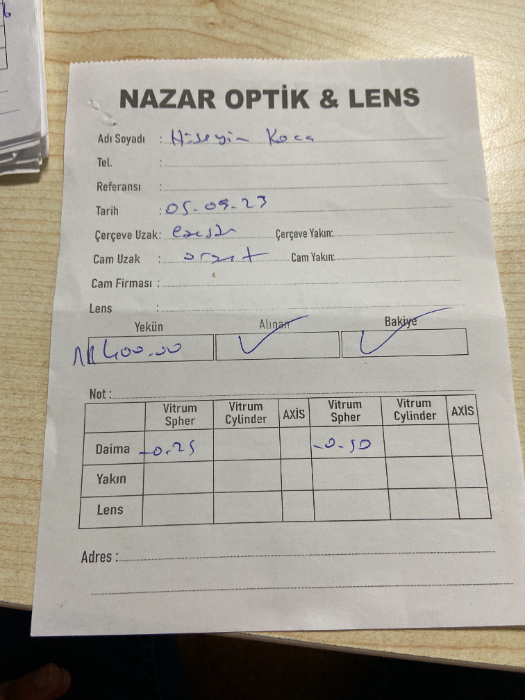 NAZAR OPTİK & LENS
Adı Soyadı : Hüseyin Koca
Tel. :
Referansı :
Tarih : 05.09.23
Çerçeve Uzak: Çerçeve Yakın:
Cam Uzak : Cam Yakın:
Cam Firması :
Lens :
Yekün Alınan Bakiye
400.00
Not :
Vitrum Spher Vitrum Cylinder AXİS Vitrum Spher Vitrum Cylinder AXİS
Daima -0.25 -0.50
Yakın
Lens
Adres :